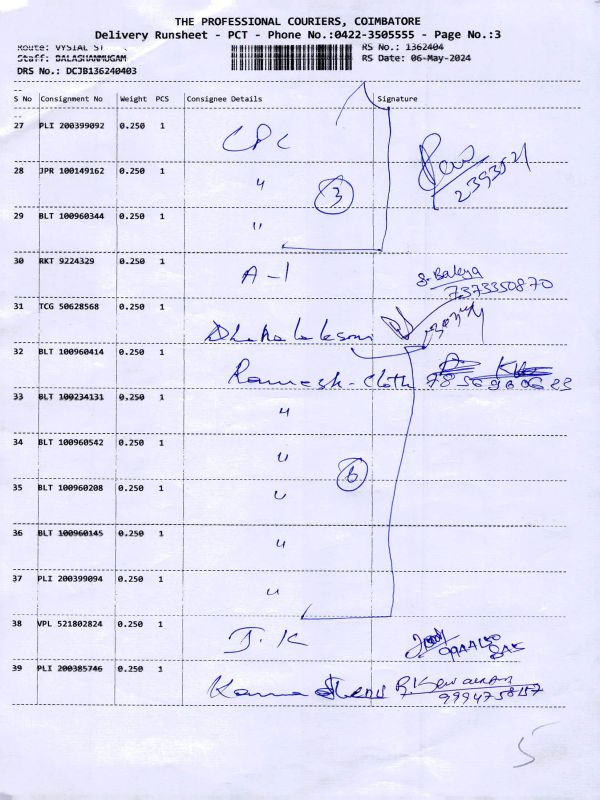 THE PROFESSIONAL COURIERS, COIMBATORE
Delivery Runsheet - PCT - Phone No.:0422-3505555 - Page No.:3
Route: VYSIAL ST
RS No.: 1362404
Staff: BALASHANMUGAM
RS Date: 06-May-2024
DRS No.: DCJB136240403
S No Consignment No Weight PCS Consignee Details Signature
27 PLI 200399092 0.250 1 CPC
28 JPR 100149162 0.250 1 " 3
29 BLT 100960344 0.250 1 "
30 RKT 9224329 0.250 1 A-1 7373350870
31 TCG 50628568 0.250 1
32 BLT 100960414 0.250 1 Ramesh-Cloth
33 BLT 100234131 0.250 1 "
34 BLT 100960542 0.250 1 "
35 BLT 100960208 0.250 1 " 6
36 BLT 100960145 0.250 1 "
37 PLI 200399094 0.250 1 "
38 VPL 521802824 0.250 1 J.K
39 PLI 200385746 0.250 1
5